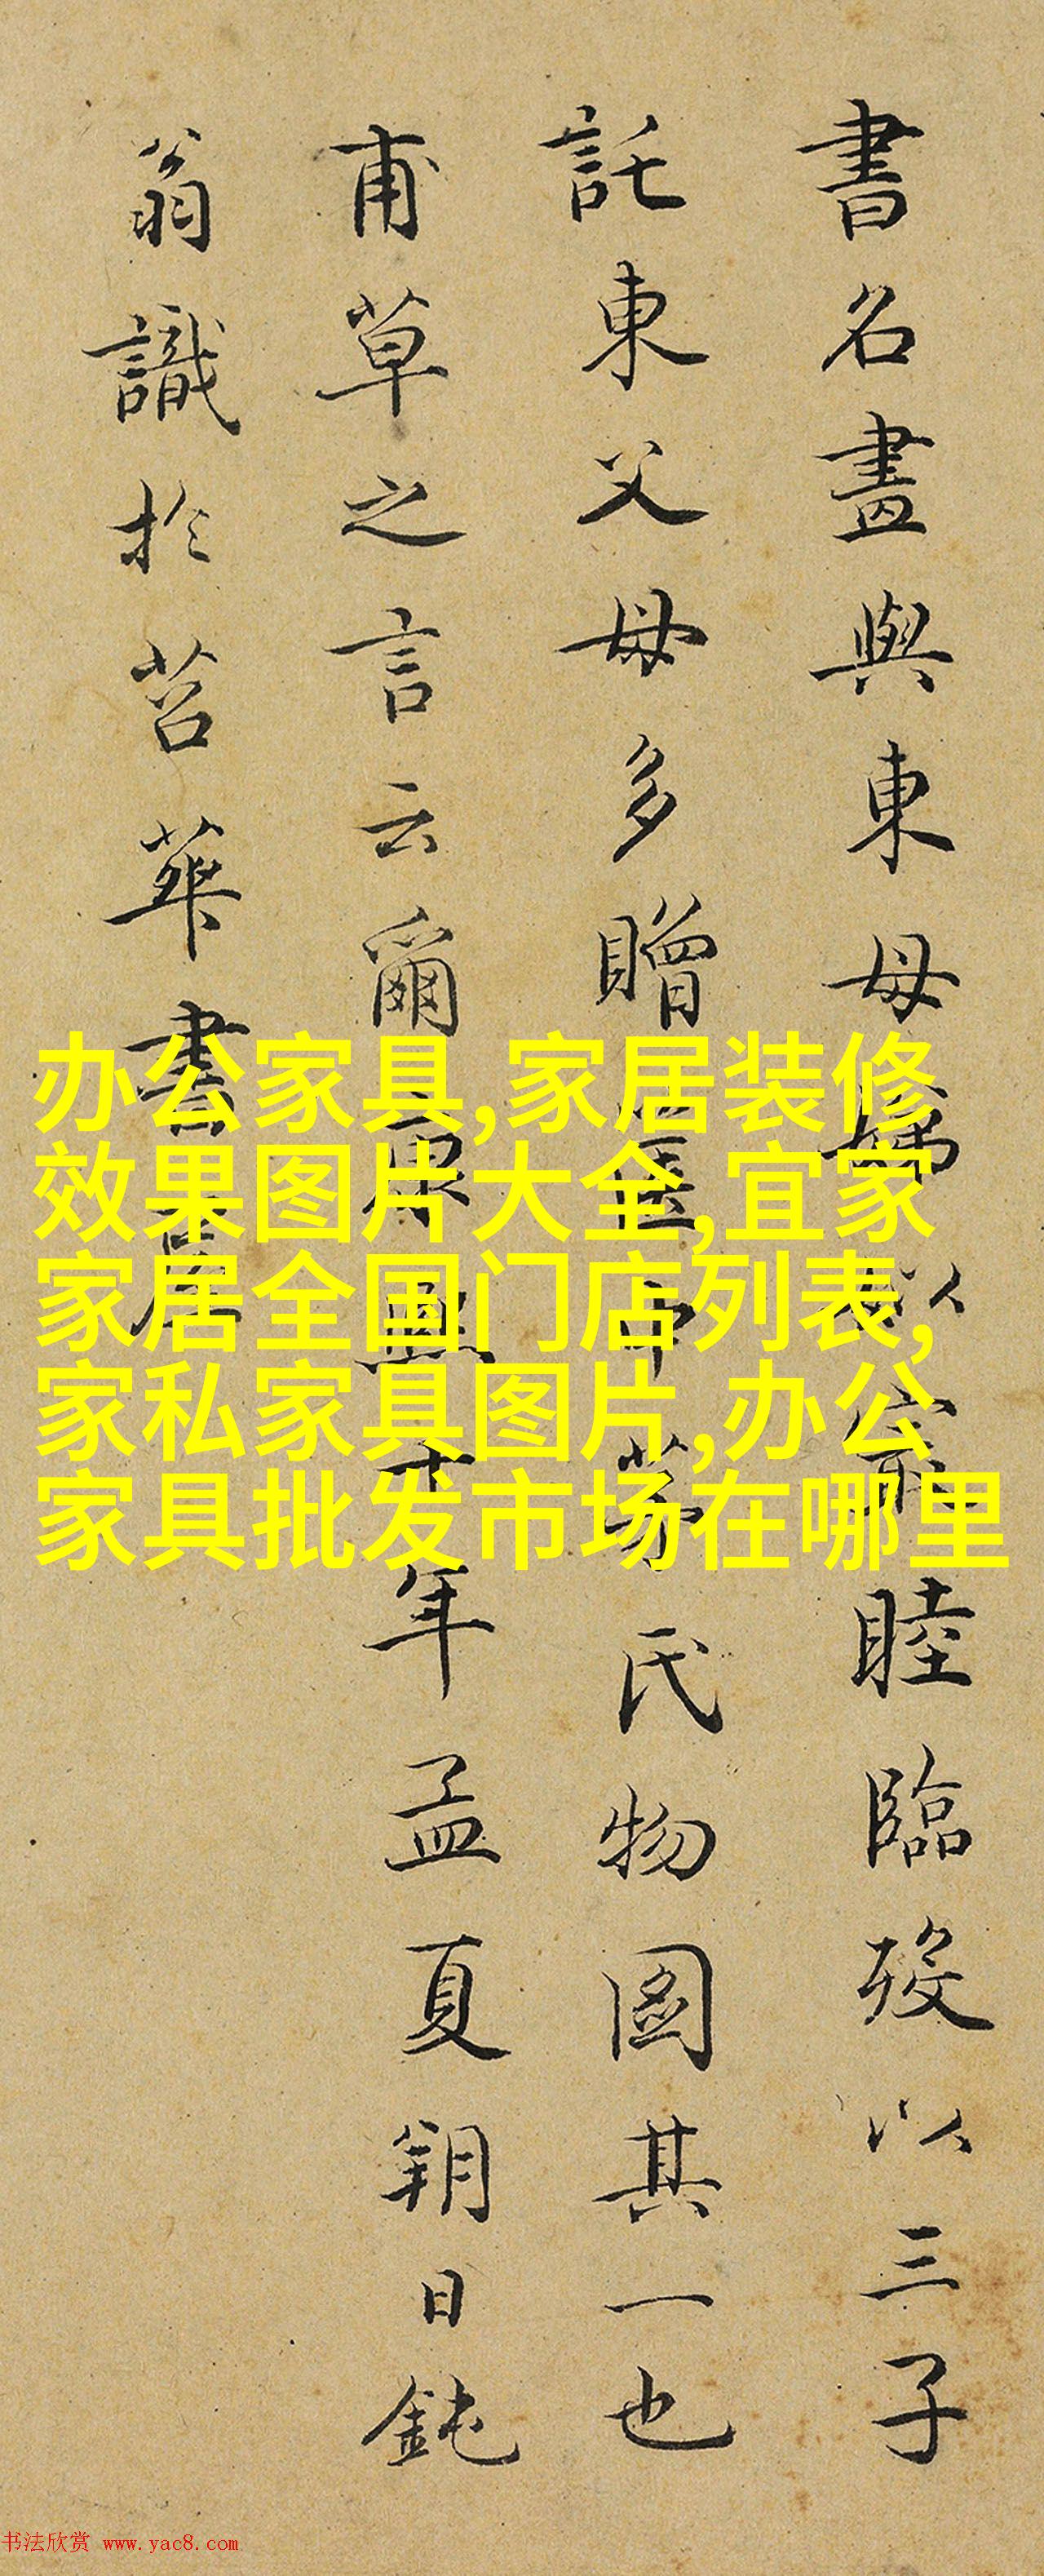 書名畫與東母以睦臨歿以三子
託東父母多贈氏物圖其一也
甫草之言云爾康熙十年孟夏朔日鈍
翁識於苕華書屋
办公家具,家居装修
效果图片大全,宜家
家居全国门店列表,
家私家具图片,办公
家具批发市场在哪里
书法欣赏 www.yac8.com